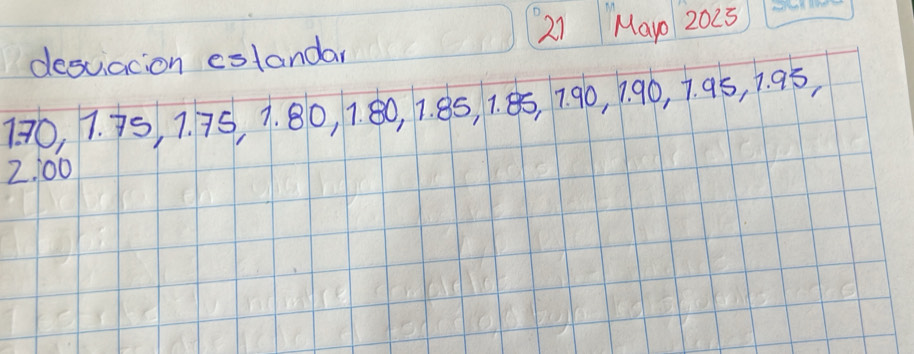 D 21 M Mayo 2025
desviacion estandar
1.70, 1.75, 1.75, 1.80, 1.80, 1.85, 1.85, 1.90, 1.90, 1.95, 1.95,
2.00